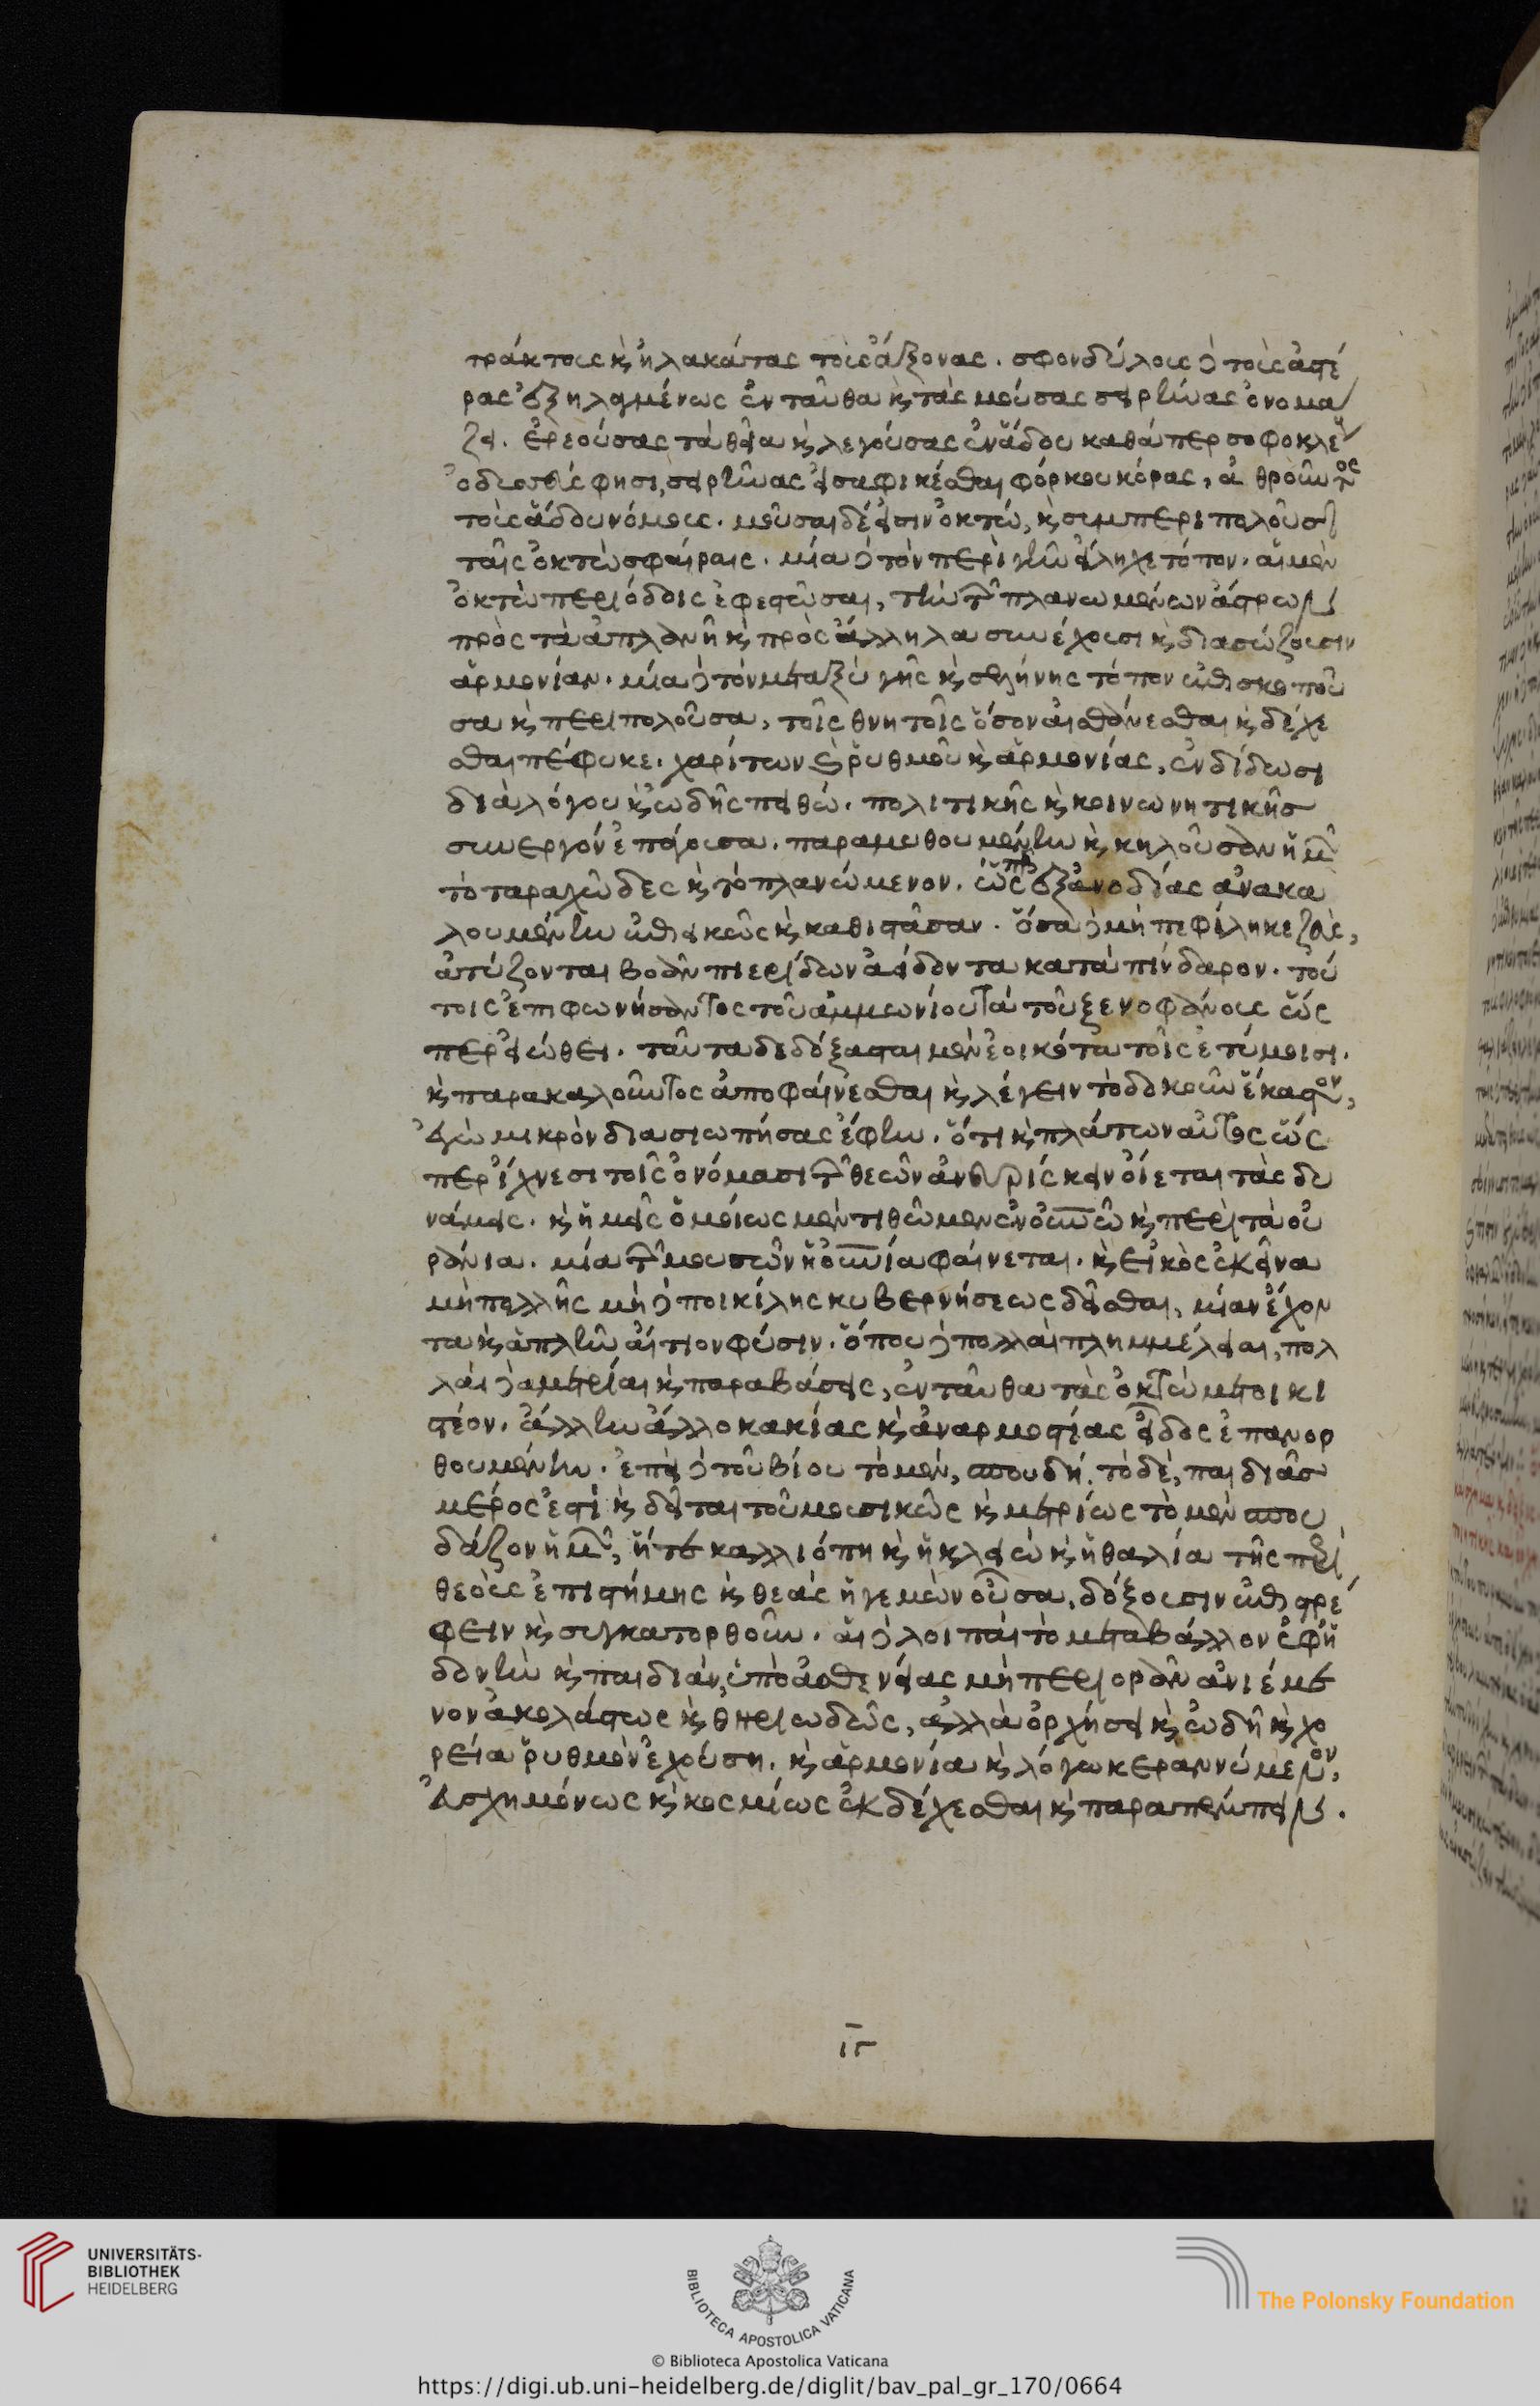 τράκτους κ ἠλακάτας τοὺς ἄξονας. σφονδύλους δὲ τοὺς ἀστέ
ρας ἐξηλαγμένως ἐνταῦθα κ τὰς μούσας σειρῆνας ὀνομά
ζει. ἐρεούσας τὰ θεῖα κ λεγούσας ἐν ἅδου καθάπερ σοφοκλέ
ὀδυσσεὺς φησι, σειρῆνας εἰσαφικέσθαι φόρκου κόρας, θροῦντος
τοὺς ἅδου νόμους. μοῦσαι δέ εἰσιν ὀκτώ, κ συμπεριπολοῦσι
ταῖς ὀκτὼ σφαίραις. μία δὲ τὸν περὶ γῆν εἴληχε τόπον. αἱ μὲν
ὀκτὼ περιόδοις ἐφεστῶσαι, τὴν τῶν πλανωμένων ἄστρων
πρὸς τὰ ἀπλανῆ κ πρὸς ἄλληλα συνέχουσι κ διασώζουσιν
ἁρμονίαν. μία δὲ τὸν μεταξὺ γῆς κ σελήνης τόπον ἐπισκοποῦ
σα κ περιπολοῦσα, τοῖς θνητοῖς ὅσον αἰσθάνεσθαι κ δέχε
σθαι πέφυκε. χαρίτων κ ῥυθμοῦ κ ἁρμονίας, ἐνδίδωσι
διὰ λόγου κ ὠδῆς πειθώ. πολιτικῆς κ κοινωνητικῆς
συνεργὸν ἐπάγουσα. παραμυθουμένην κ κηλοῦσαν ἡμῶν
τὸ ταραχῶδες κ τὸ πλανώμενον. ὥσπερ ἐξ ἀνοδίας ἀνακα
λουμένην ἐπιεικῶς κ καθιστᾶσαν. ὅσα δὲ μὴ πεφίληκε ζεὺς,
ἀτύζονται βοὰν πιερίδων ἀείδοντα κατὰ πίνδαρον. τού
τοις ἐπιφωνήσαντος τοῦ ἀμμωνίου τὰ τοῦ ξενοφάνους ὥς
περ εἰώθει. ταῦτα δεδόξασται μὲν ἐοικότα τοῖς ἐτύμοισι.
κ παρακαλοῦντος ἀποφαίνεσθαι κ λέγειν τὸ δοκοῦν ἕκαστον,
ἐγὼ μικρὸν διασιωπήσας ἔφην. ὅτι κ πλάτων αὐτὸς ὥς
περ ἴχνεσι τοῖς ὀνόμασι τῶν θεῶν ἀνευρίσκειν οἴεται τὰς δυ
νάμεις. κ ἡμεῖς ὁμοίως μὲν τιθῶμεν ἐν οὐνῶ κ περὶ τὰ οὐ
ράνια. μία τῶν μουσῶν ἡ οὐνία φαίνεται. κ εἰκὸς ἐκεῖνα
μὴ πολλῆς μὴ δὲ ποικίλης κυβερνήσεως δεῖσθαι, μίαν ἔχον
τα κ ἁπλῆν αἴτιον φύσιν. ὅπου δὲ πολλαὶ πλημμέλειαι, πολ
λαὶ δὲ ἀμετρίαι κ παραβάσεις, ἐνταῦθα τὰς ὀκτὼ μετοικι
στέον. ἄλλην ἄλλο κακίας κ ἀναρμοστίας εἶδος ἐπανορ
θουμένην. ἐπεὶ δὲ τοῦ βίου τὸ μὲν, σπουδή, τὸ δὲ, παιδιᾶς
μέρος ἐστὶ κ δεῖται τοῦ μουσικῶς κ μετρίως τὸ μὲν σπου
δάζον ἡμῶν, ἥτε καλλιόπη κ ἡ κλειὼ κ ἡ θαλία τῆς περὶ
θεοὺς ἐπιστήμης κ θεὰς ἡγεμὼν οὖσα, δόξουσιν ἐπιστρέ
φειν κ συγκατορθοῦν. αἱ δὲ λοιπαὶ τὸ μεταβάλλον ἐφ' ἡ
δονὴν κ παιδιάν, ὑπὸ ἀσθενείας μὴ περιορᾶν ἀνιέμε
νον ἀκολάστως κ θηριωδῶς, ἀλλὰ ὀρχήσει κ ὠδῇ κ χο
ρεία ῥυθμὸν ἐχούση. κ ἁρμονία κ λόγω κεραννύμενον,
εὐσχημόνως κ κοσμίως ἐκδέχεσθαι κ παραπέμπειν.
ιγ
UNIVERSITÄTS-
BIBLIOTHEK
HEIDELBERG
BIBLIOTECA APOSTOLICA VATICANA
The Polonsky Foundation
© Biblioteca Apostolica Vaticana
https://digi.ub.uni-heidelberg.de/diglit/bav_pal_gr_170/0664